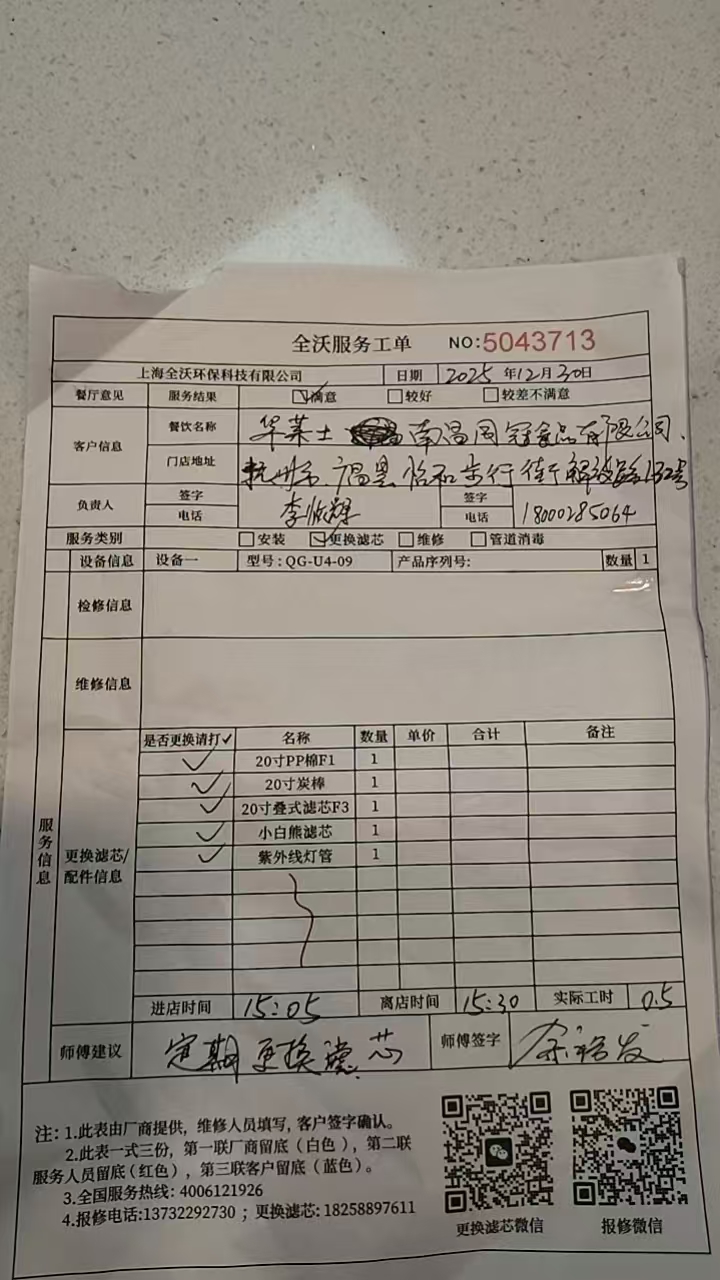 全沃服务工单 NO:5043713
上海全沃环保科技有限公司 日期 2025年12月30日
餐厅意见 服务结果 ☑满意 □较好 □较差不满意
客户信息 餐饮名称 华莱士 南昌同冠食品有限公司
门店地址 杭州市 步行街解放路132号
负责人 签字 李 辉 签字
电话 电话 18000285064
服务类别 □安装 ☑更换滤芯 □维修 □管道消毒
设备信息 设备一 型号:QG-U4-09 产品序列号: 数量 1
检修信息
维修信息
服务信息
更换滤芯/配件信息
是否更换请打✓ 名称 数量 单价 合计 备注
✓ 20寸PP棉F1 1
✓ 20寸炭棒 1
✓ 20寸叠式滤芯F3 1
✓ 小白熊滤芯 1
✓ 紫外线灯管 1
进店时间 15:05 离店时间 15:30 实际工时 0.5
师傅建议 定期更换滤芯 师傅签字 余 发
注:1.此表由厂商提供,维修人员填写,客户签字确认。
2.此表一式三份,第一联厂商留底(白色),第二联
服务人员留底(红色),第三联客户留底(蓝色)。
3.全国服务热线:4006121926
4.报修电话:13732292730;更换滤芯:18258897611
更换滤芯微信 报修微信